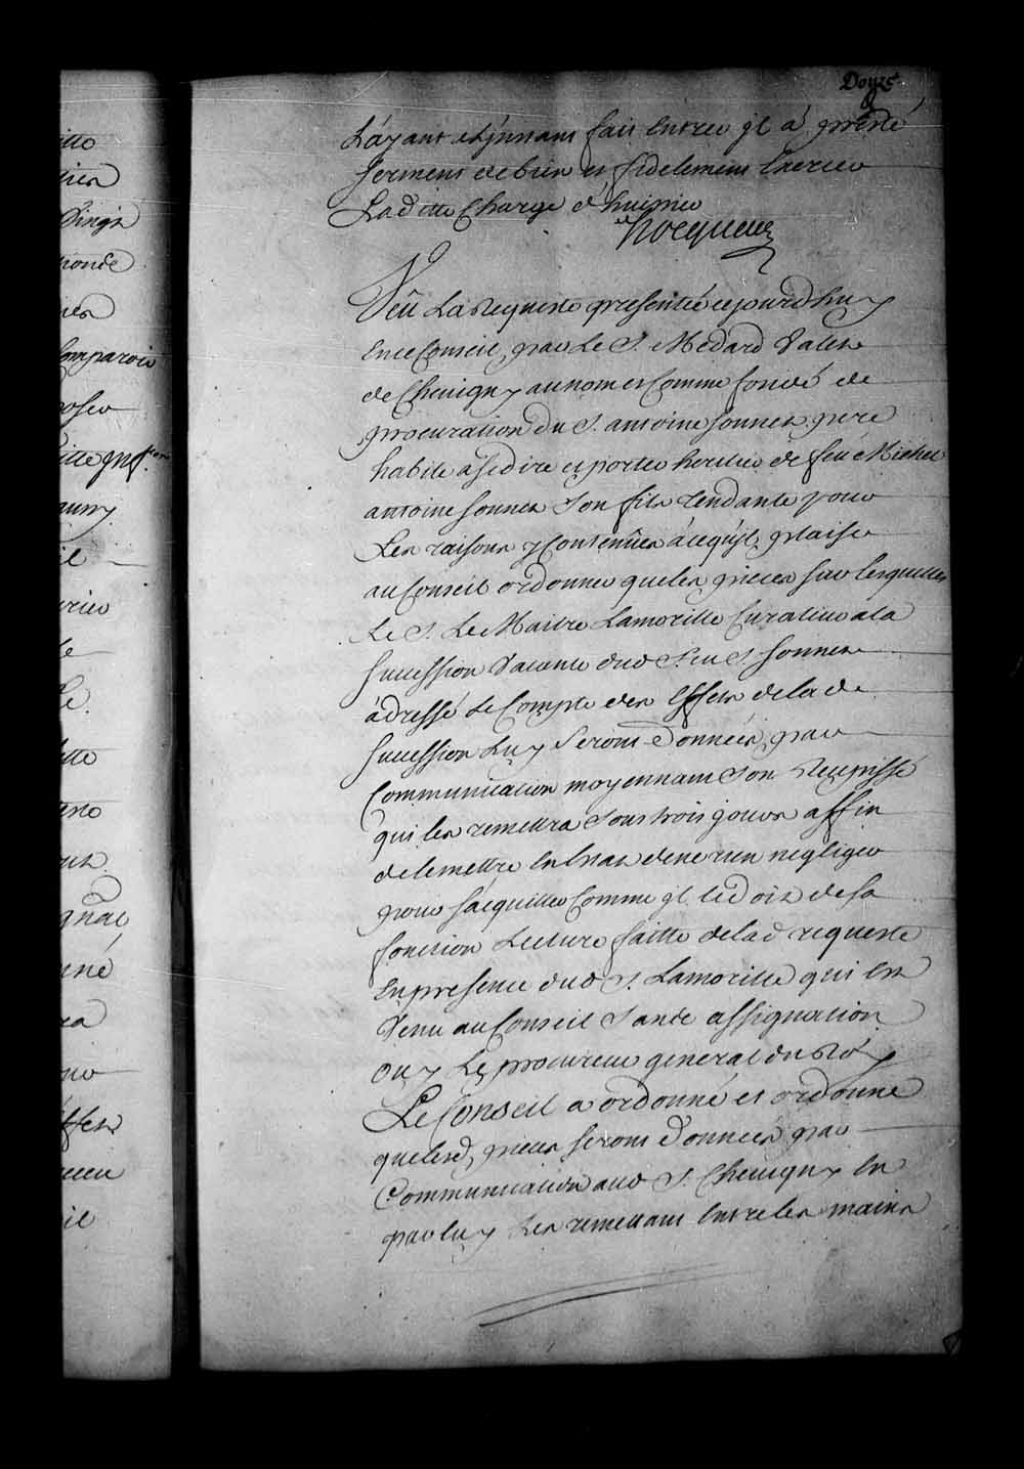 Douze
L'ayant a L'jnstant fait Entrer jl à presté
serment de bien et fidelement Exercer
Laditte Charge d'huissier
hocquart
Veû La Requeste presentée cejourd'huy
En ce Conseil, par Le S. Medard Valets
de Chevigny au nom et Comme fondé de
procuration du S. antoine sonnes pere
habile à se dire et porter heritier de feu Michel
antoine sonnes son fils tendante pour
Les raisons y Contenües à cequ'jl plaise
au Conseil ordonner queles pieces sur lesquelles
Le S. Le Maitre Lamorille Curateur a la
succession Vacante dud feu S. sonnes
àdressé Le Compte des Effets de lade
succession Luy seront Données par
Communication moyennant son Recepissé
qui les remettra sous trois jours affin
de le mettre En Etat dene rien negliger
pour s'acquitter Comme jl le doit de sa
fonction Lecture faitte delad requeste
En presence dud S. Lamorille qui Est
Venu au Conseil sans assignation
ouy Le procureur general du Roy
Le Conseil a ordonné et ordonne
quelesd pieces seront Données par
Communication aud S. Chevigny En
par luy Les remettant Entre les mains
itto
ded
Comparoir
poser
il
urier
le
itto
gnac
né
no
ffets
il